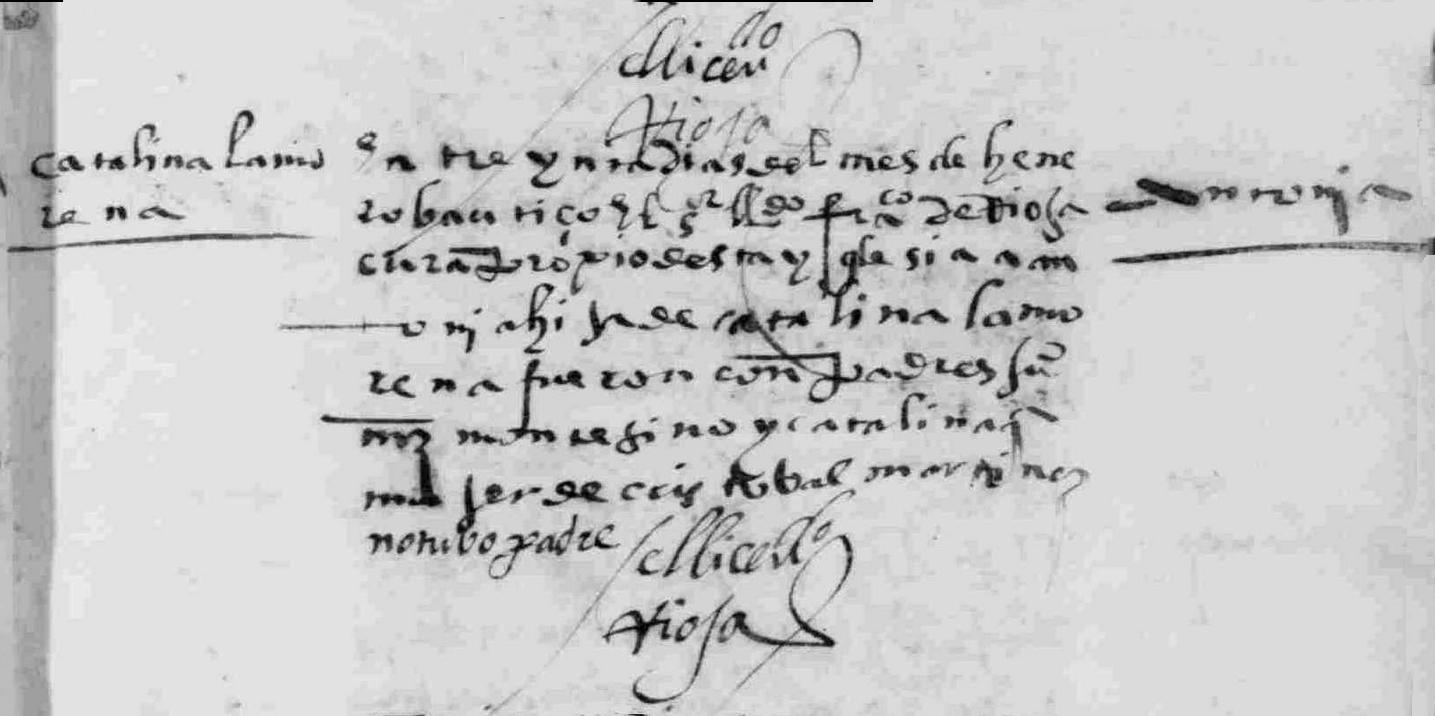 el licendo
Rioja
catalina lamo
rena
En treynta dias del mes de hene
ro bautiço El sr lldo franco de Rioja
cura propio desta yglesia a an
tonia hija de catalina lamo
rena fueron conpadres Ju
mrz montesino y catalina
muger de cristobal martinez
no tubo padre
Antonia
el licendo
Rioja